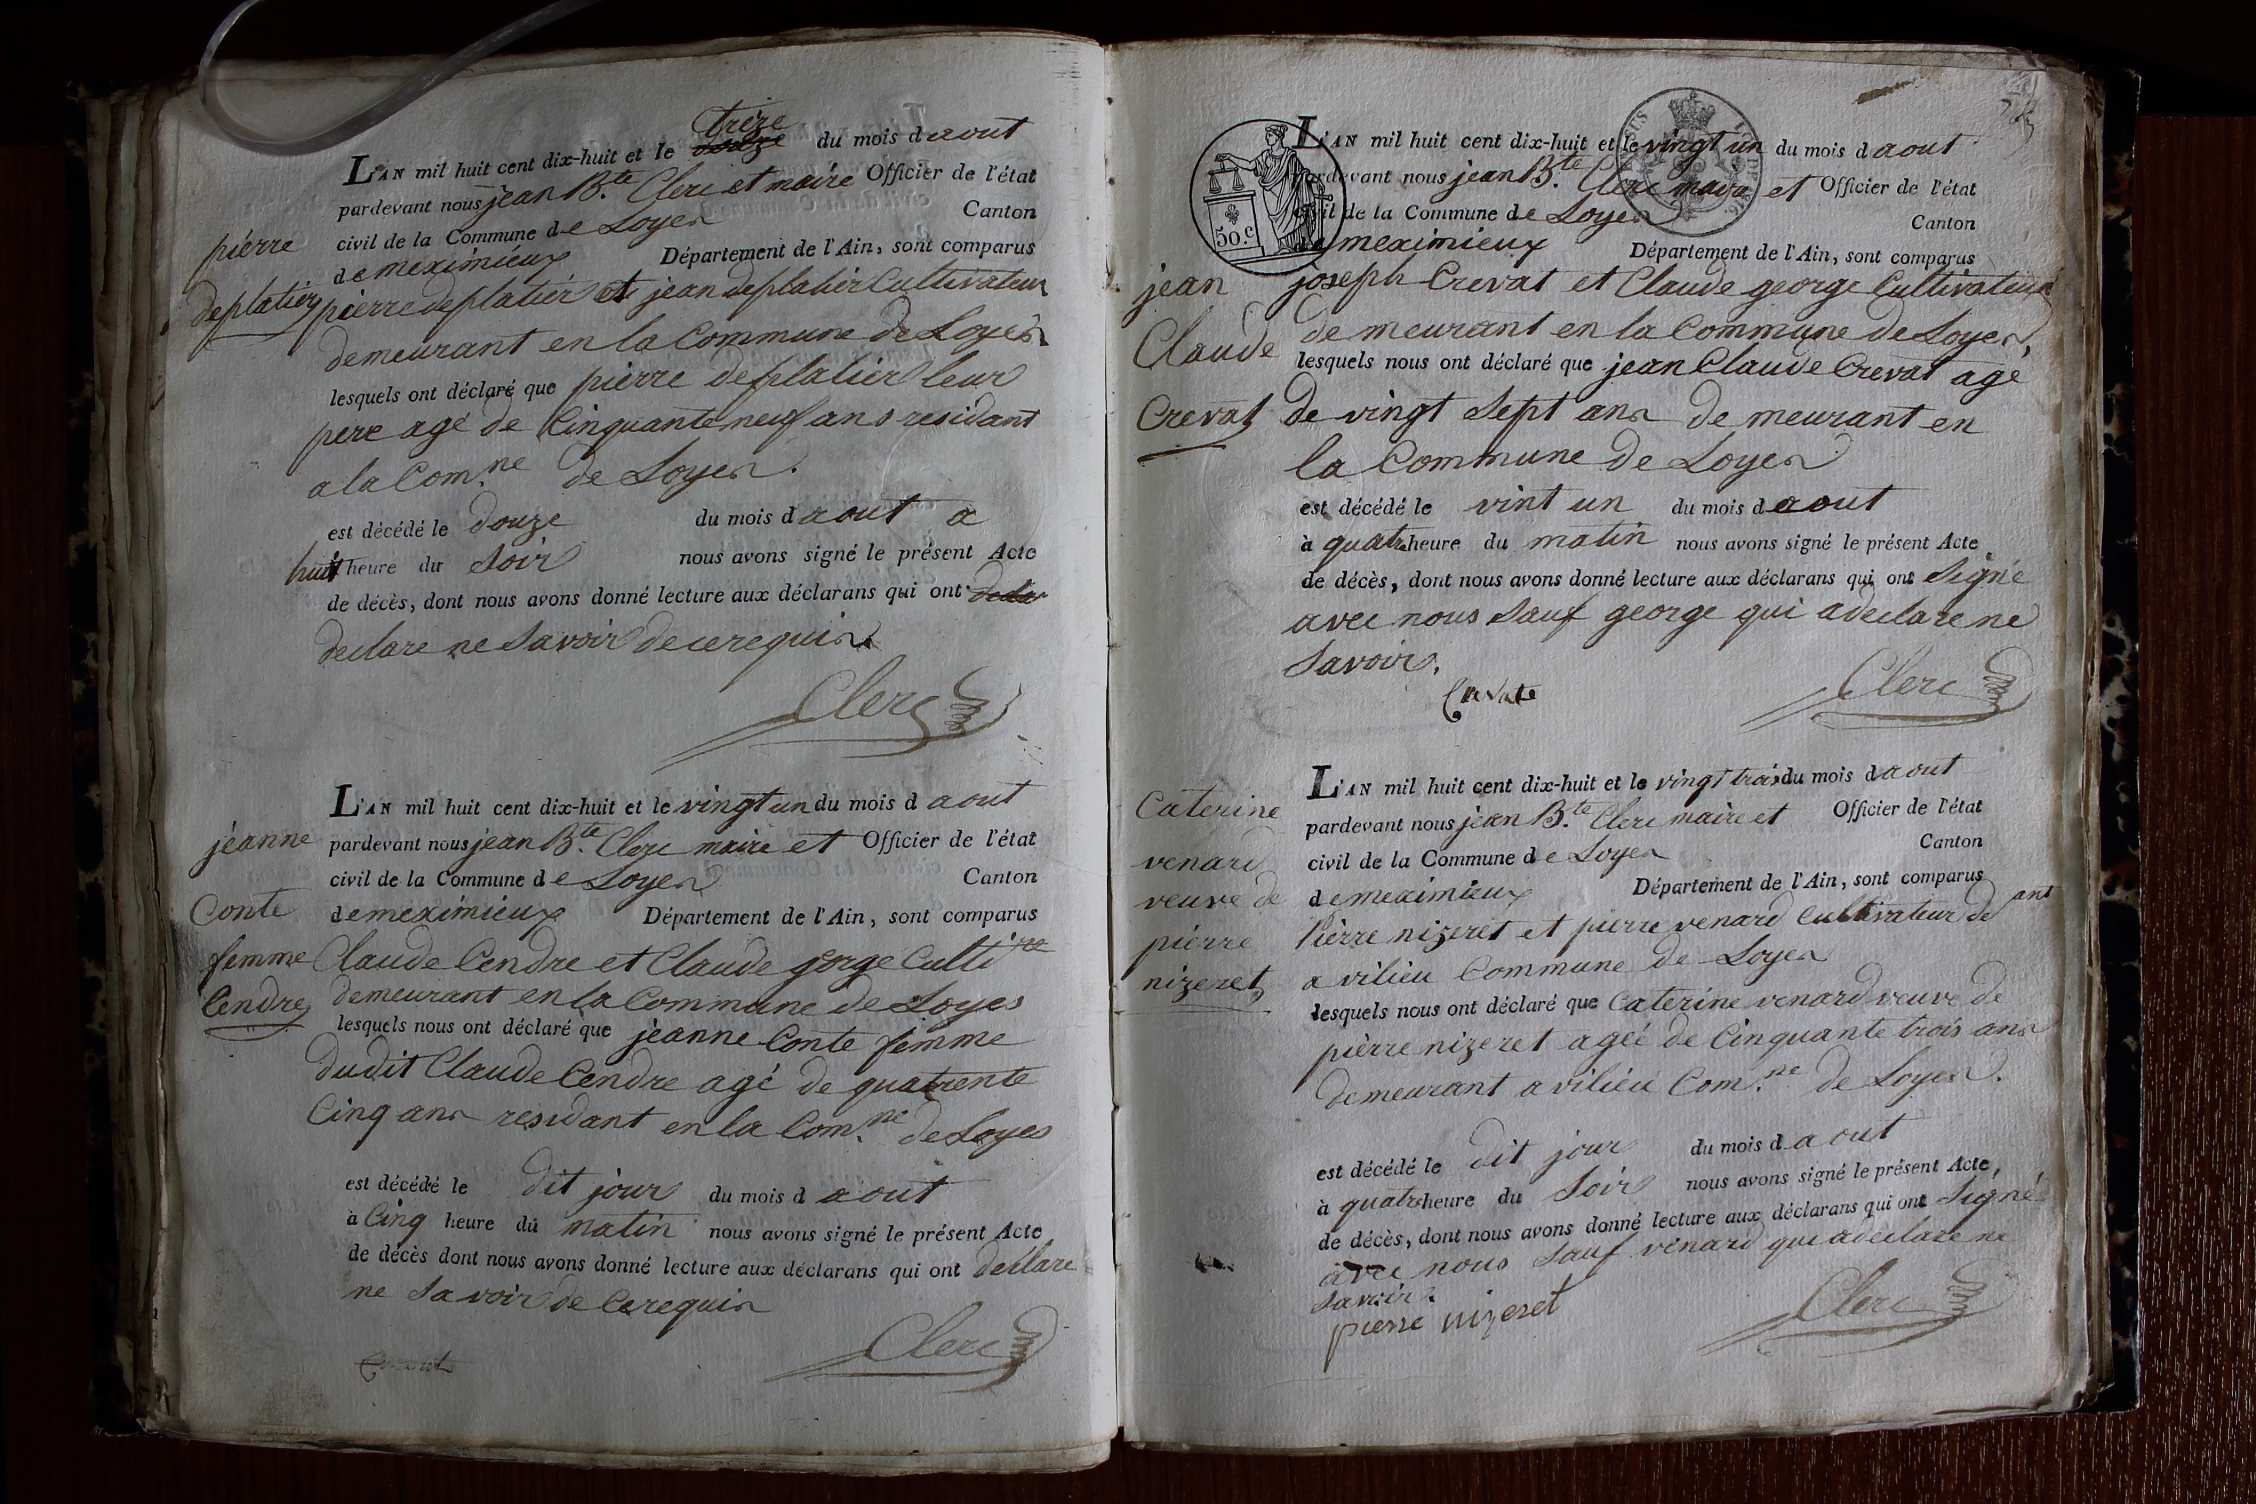 trèze
L'AN mil huit cent dix-huit et le douze du mois d aout
pardevant nous jean B.te Clerc et maire Officier de l'état
civil de la Commune de Loyes Canton
de meximieux Département de l'Ain, sont comparus
pierre
deplatier
pierre deplatier et jean deplatier Cultivateur
demeurant en la Commune de Loyes
lesquels ont déclaré que pierre deplatier leur
pere agé de Cinquante neuf ans residant
a la Com.ne de Loyes.
est décédé le douze du mois d aout a
huit heure du Soir nous avons signé le présent Acte
de décès, dont nous avons donné lecture aux déclarans qui ont decla
declare ne Savoir de ce requis
Clerc
L'AN mil huit cent dix-huit et le vingt un du mois d aout
pardevant nous jean B.te Clerc maire et Officier de l'état
civil de la Commune de Loyes Canton
de meximieux Département de l'Ain, sont comparus
jeanne
Conte
femme
Cendre
Claude Cendre et Claude gorge Culti.re
demeurant en la Commune de Loyes
lesquels nous ont déclaré que jeanne Conte femme
dudit Claude Cendre agé de quatrente
Cinq ans residant en la Com.ne de Loyes
est décédé le dit jour du mois d aout
à Cinq heure du matin nous avons signé le présent Acte
de décès dont nous avons donné lecture aux déclarans qui ont declare
ne Savoir de Ce requis
Clerc
50.c
L'AN mil huit cent dix-huit et le vingt un du mois d aout
pardevant nous jean B.te Clerc maire et Officier de l'état
civil de la Commune de Loyes Canton
de meximieux Département de l'Ain, sont comparus
jean
Claude
Crevat
joseph Crevat et Claude george Cultivateurs
de meurant en la Commune de Loyes,
lesquels nous ont déclaré que jean Claude Crevat agé
de vingt Sept ans de meurant en
la Commune de Loyes
est décédé le vint un du mois d aout
à quatre heure du matin nous avons signé le présent Acte
de décès, dont nous avons donné lecture aux déclarans qui ont Signé
avec nous Sauf george qui a declare ne
Savoir.
Clerc
L'AN mil huit cent dix-huit et le vingt trois du mois d aout
pardevant nous jean B.te Clerc maire et Officier de l'état
civil de la Commune de Loyes Canton
de meximieux Département de l'Ain, sont comparus
Caterine
venard
veuve de
pierre
nizeret
Pierre nizeret et pierre venard Cultivateur de ant
a vilieu Commune de Loyes
lesquels nous ont déclaré que Caterine venard veuve de
pièrre nizeret agéé de Cinquante trois ans
demeurant a vilieu Com.ne de Loyes.
est décédé le dit jour du mois d aout
à quatre heure du Soir nous avons signé le présent Acte,
de décès, dont nous avons donné lecture aux déclarans qui ont Signé
avec nous Sauf venard qui a declare ne
Savoir.
pierre nizeret
Clerc